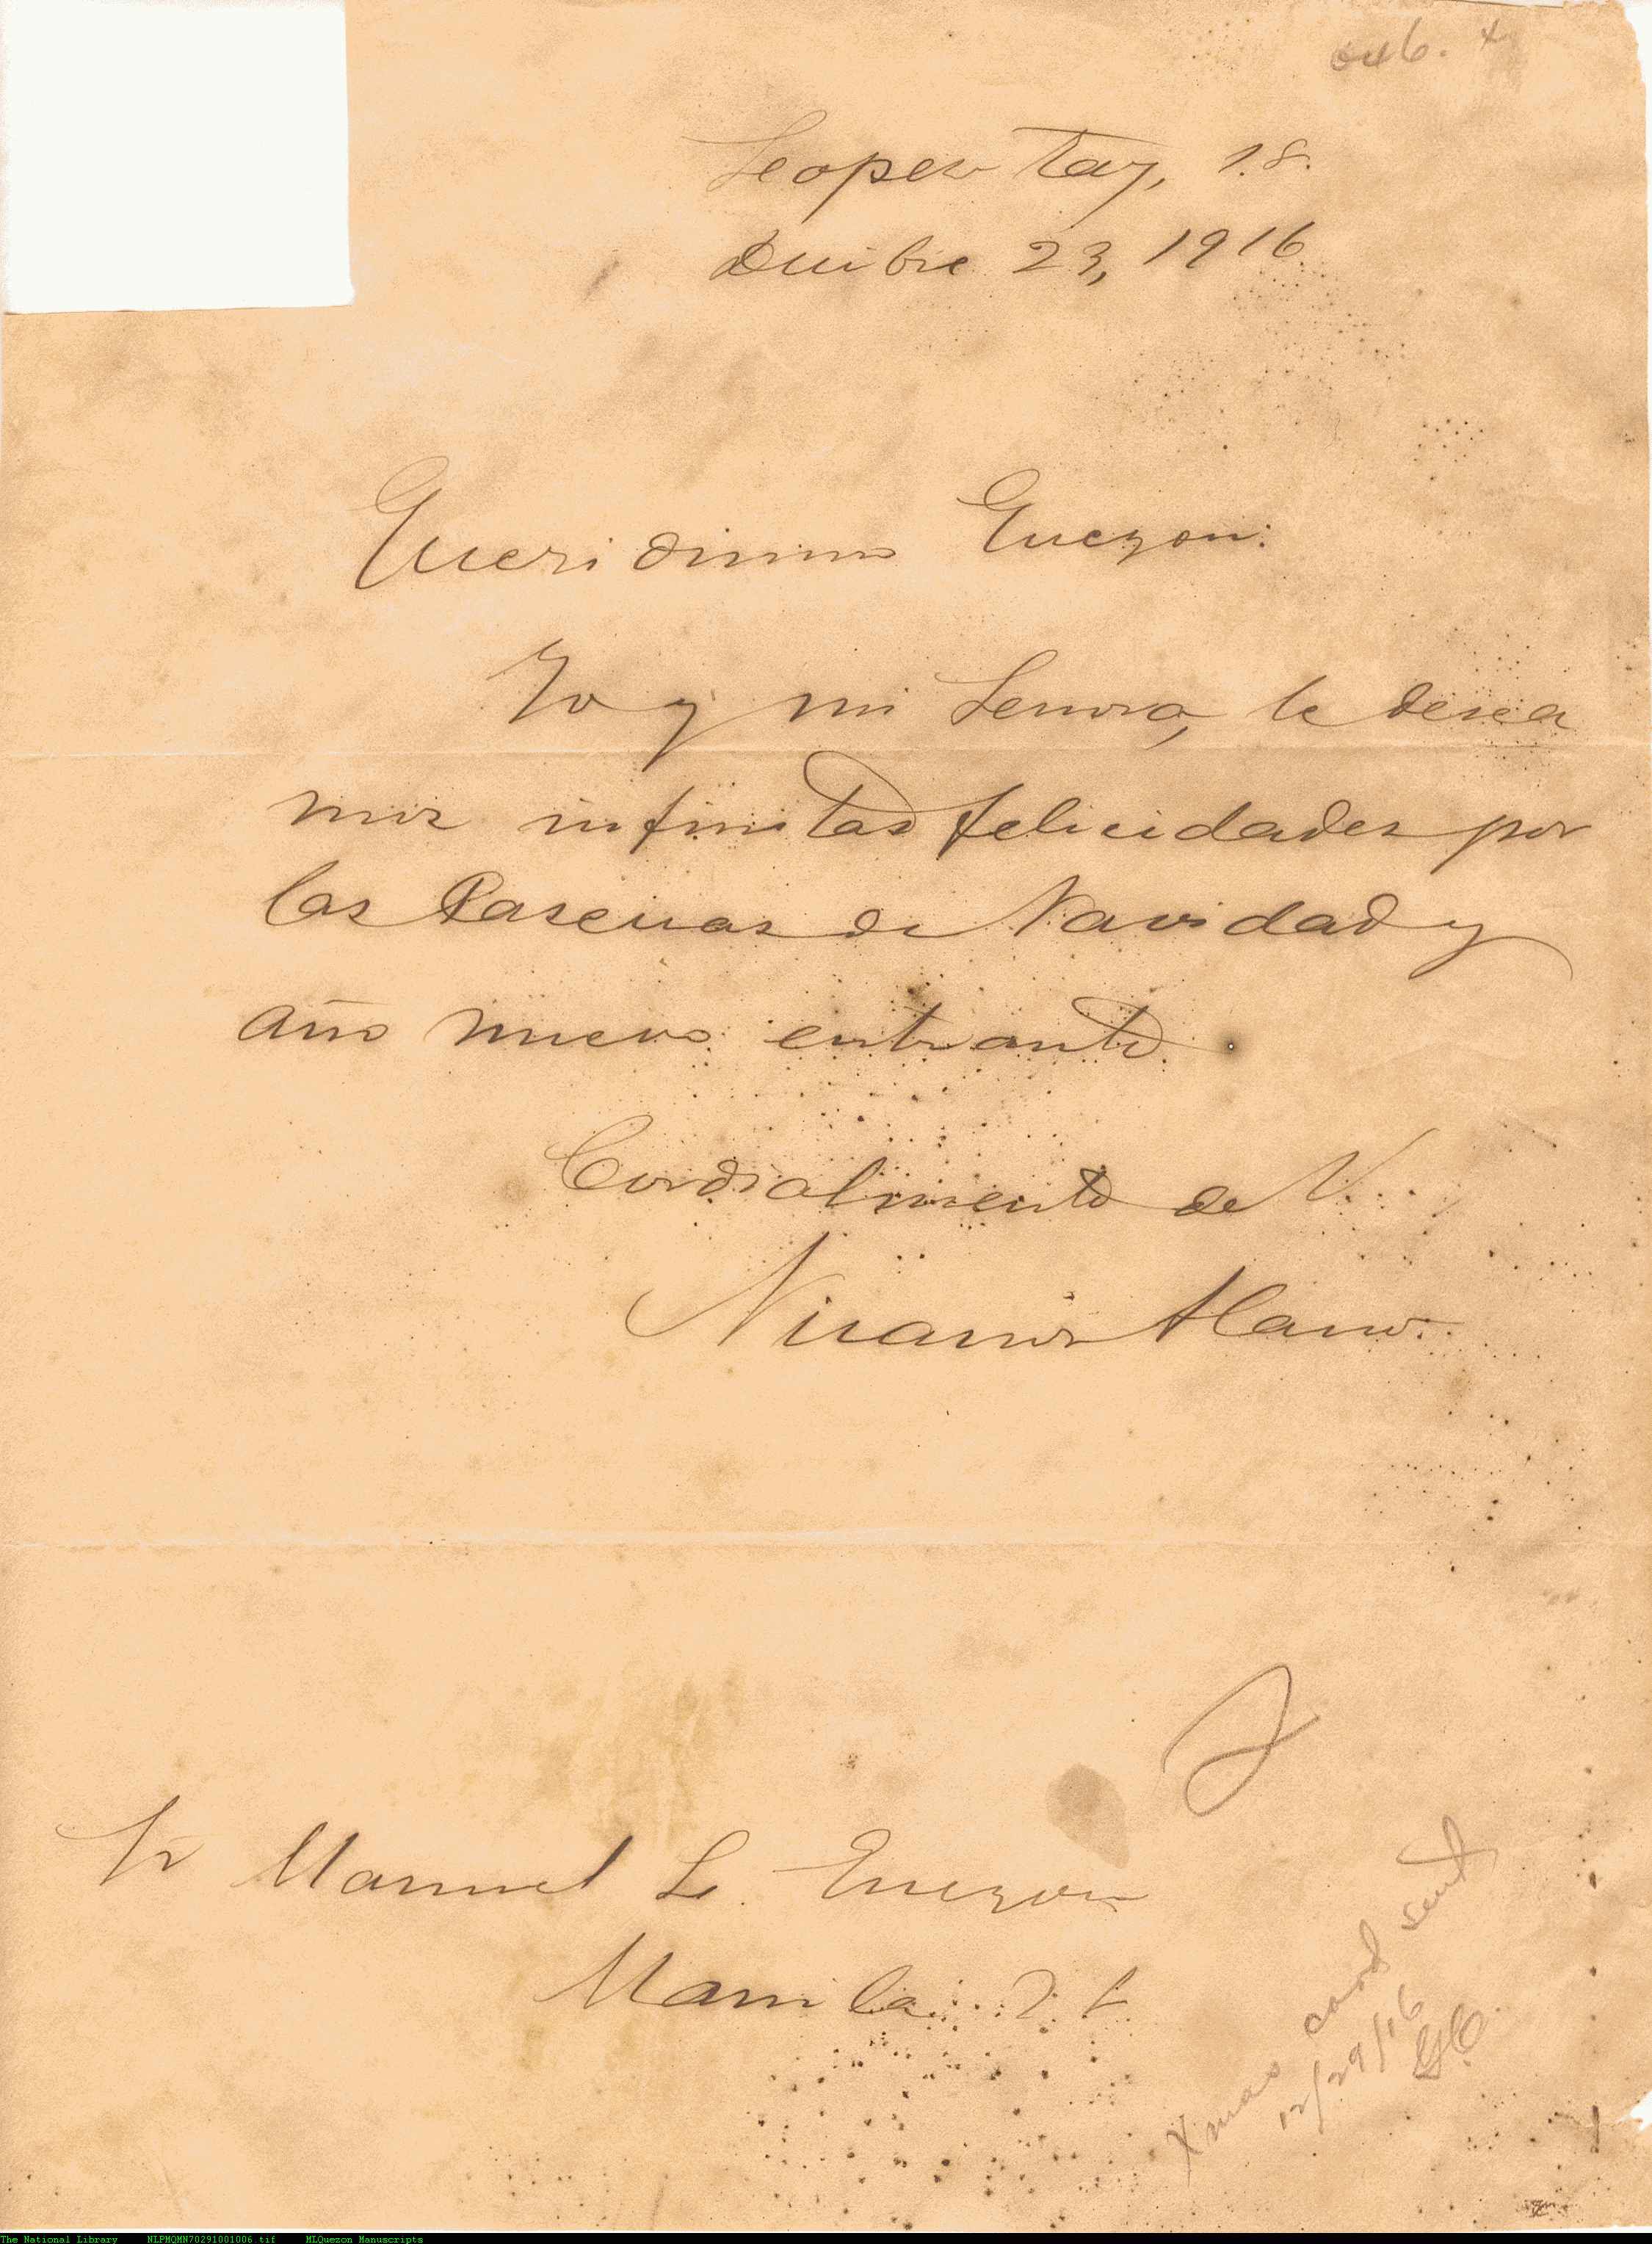 Lopez Tay, I.S.
Dicibre 23, 1916
Queridisimo Quezon:
Yo y mi Senora, le desea
mos infinitas felicidades por
las Pascuas de Navidad y
año nuevo entrante.
Cordialmente de V.
Nicanor Alano.
Sr Manuel L. Quezon
Manila
Xmas card sent
12/29/16
The National Library NLPMQMN70291001006.tif MLQuezon Manuscripts